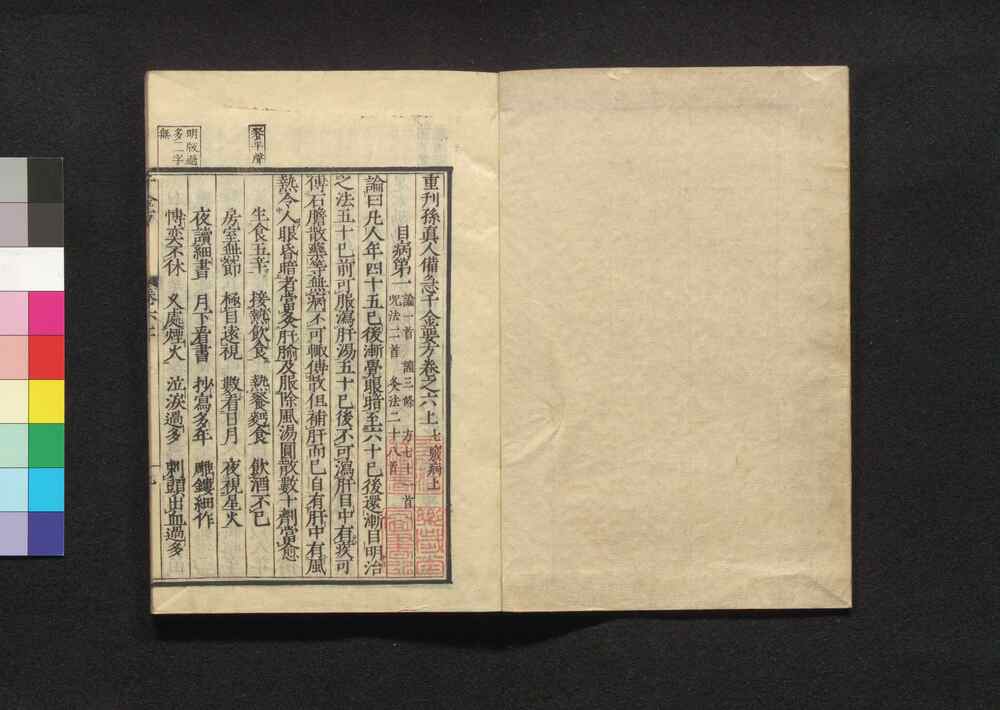 重刋孫真人備急千金要方卷之六上 七竅病上
目病第一 論一首 論三條 方七十一首
呪法二首 灸法二十八首
論曰凡人年四十五已後漸覺眼暗至六十已後還漸目明治
之法五十已前可服瀉肝湯五十已後不可瀉肝目中有疾可
傅石膽散藥等無病不可輙傅散但補肝而已自有肝中有風
熱令人眼昏暗者當灸肝腧及服除風湯圓散數十劑當愈
生食五辛 接熱飲食 熱飡麫食 飲酒不已
房室無節 極目遠視 數看日月 夜視星火
夜讀細書 月下看書 抄寫多年 雕鏤細作
博奕不休 久處煙火 泣淚過多 刺頭出血過多
明版過
多二字
無